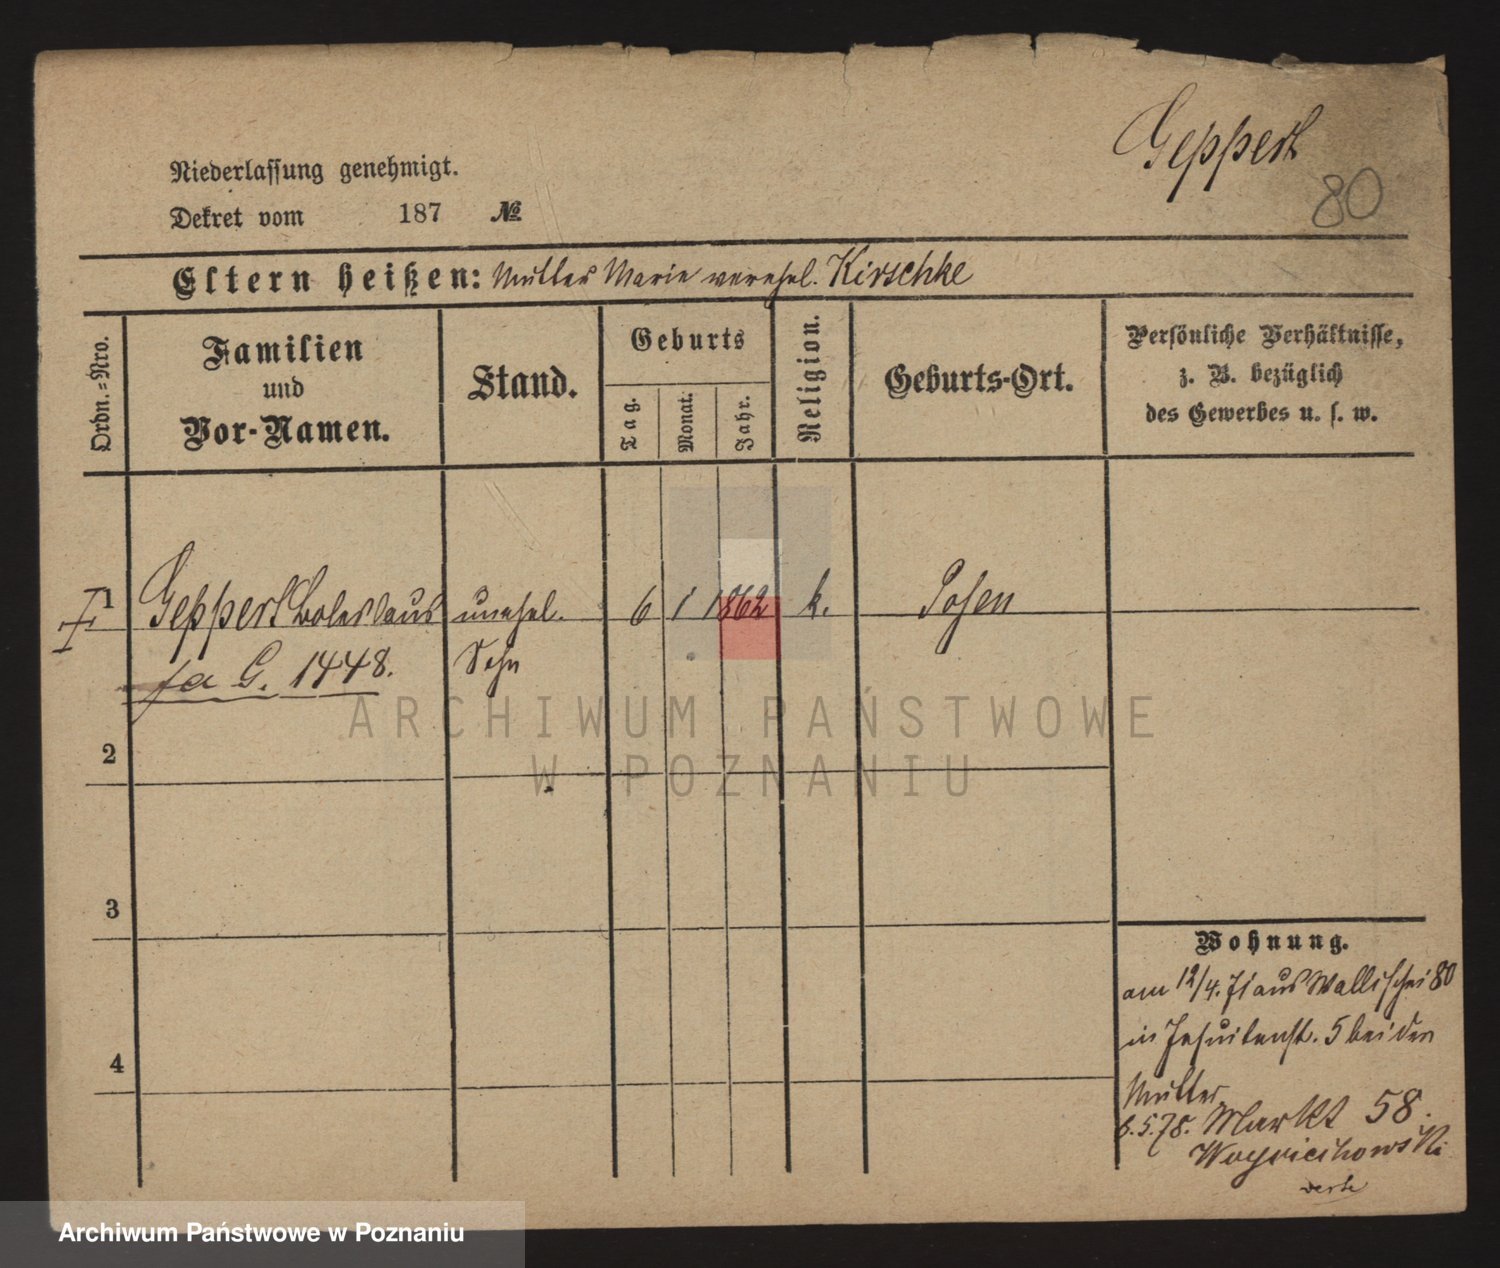 Geppert
80
Niederlassung genehmigt.
Dekret vom 187 №
Eltern heißen: Mutter Marie verehel. Kirschke
Ordn.=Nro.
Familien
und
Vor-Namen.
Stand.
Geburts
Tag.
Monat.
Jahr.
Religion.
Geburts-Ort.
Persönliche Verhältnisse,
z. B. bezüglich
des Gewerbes u. s. w.
1 Geppert Boleslaus unehel. 6 1 1862 k. Posen
fa G. 1448. Sohn
ARCHIWUM PAŃSTWOWE
W POZNANIU
2
3
4
Wohnung.
am 12/4. 71 aus Wallischei 80
in Jesuitenst. 5 bei der
Mutter
6.5.78. Markt 58.
verte
Archiwum Państwowe w Poznaniu